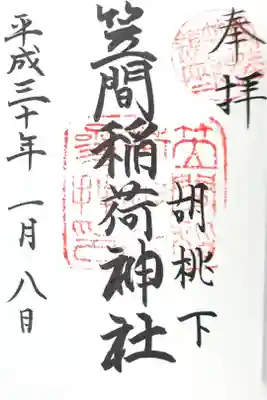 奉拝
胡桃下
笠間稲荷神社
平成三十年 一月 八日